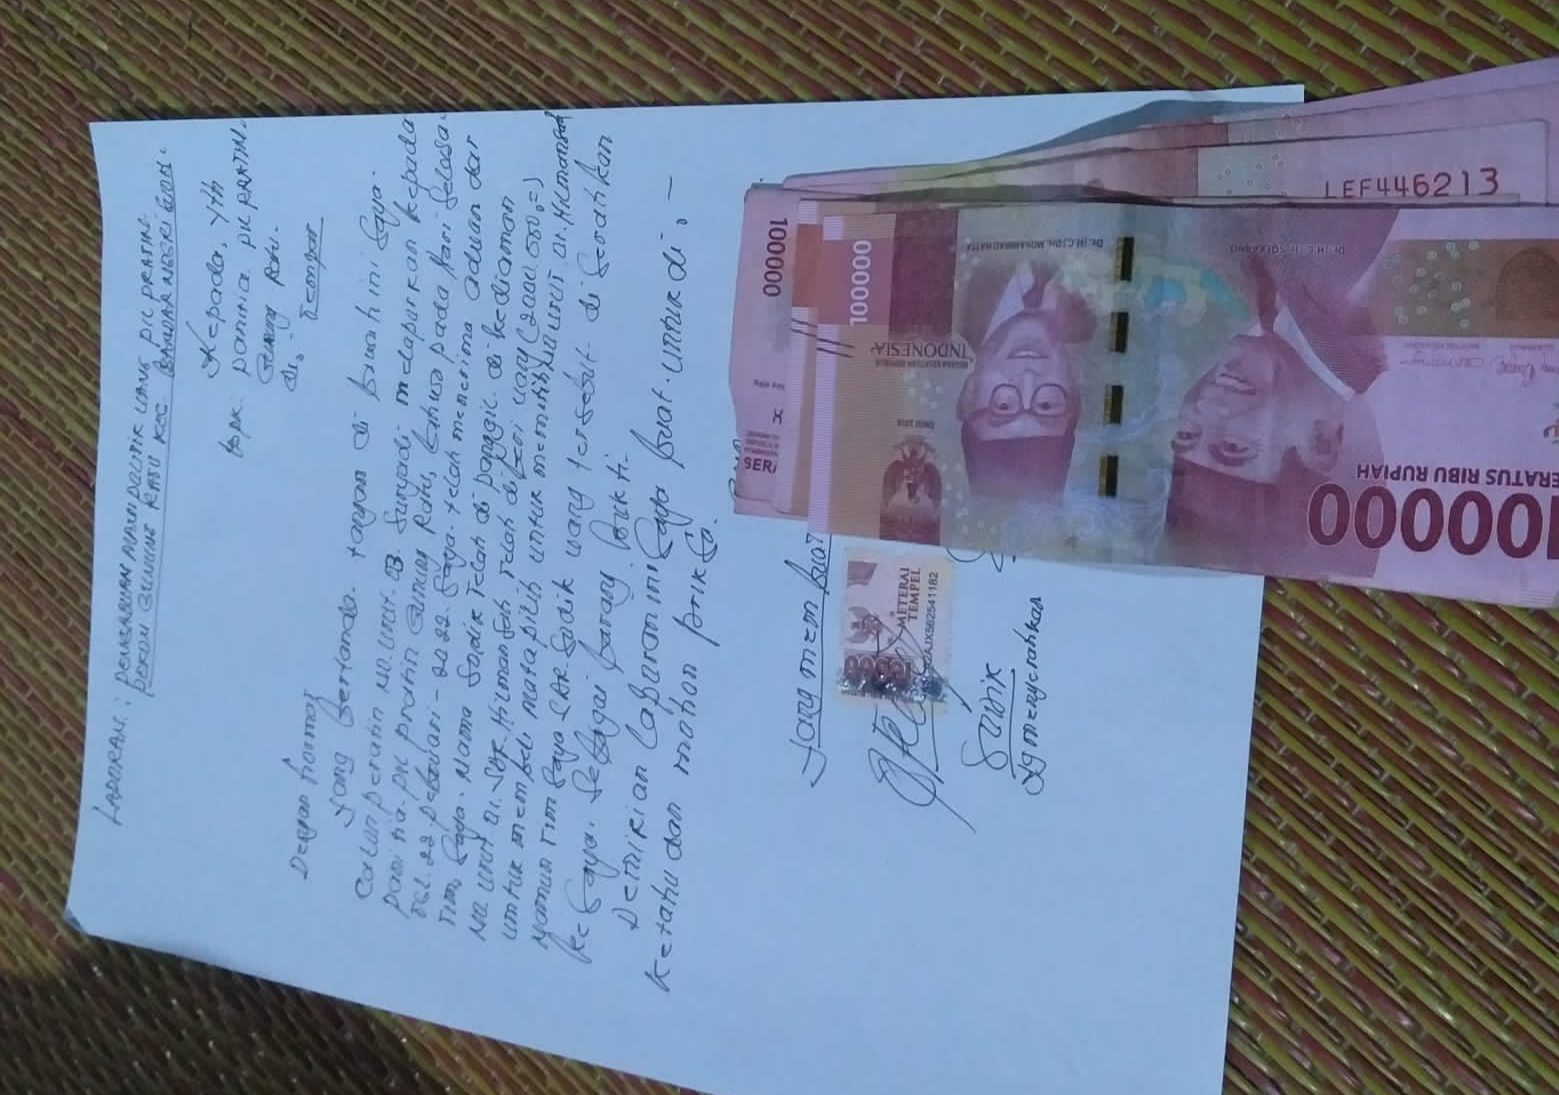 LAPORAN : PENGADUAN MONIPOLITIK UANG PIL PRATIN.
PEKON GUNUNG RATU KEC. BANDAR NEGRI
Kepada, Yth
BPK: panitia PIL PRATIN.
Gunung Ratu.
di,-
Tempat
Dengan hormat
Yang bertanda tangan di bawah ini saya.
Calun peratin no urut 03 Sunyadi melapurkan kepada
panitia PIL pratin Gunung Ratu, bahwa pada hari selasa
tgl. 22. pebuari - 2022. saya telah menerima aduan dar
Tim saya. Nama Sodik Telah di panggil di kediaman
no urut 01. SDR. Hilmansah Telah diberi uang (2.000.000,=)
untuk membeli mata pilih untuk memilih no urut 01. HILMANSAH
Namun Tim saya SDR. Sodik uang tersebut di serahkan
ke saya. sebagai barang bukti.
Demikian laporan ini saya buat. untuk di,-
ketahui dan mohon prik sa.
yang mem buat
METERAI
TEMPEL
AJX562541182
Sodik
yg menyerahkan
LEF446213
100000
100000
INDONESIA
Dr. (H.C.) Dr. MOHAMMAD HATTA
ERATUS RIBU RUPIAH
100000